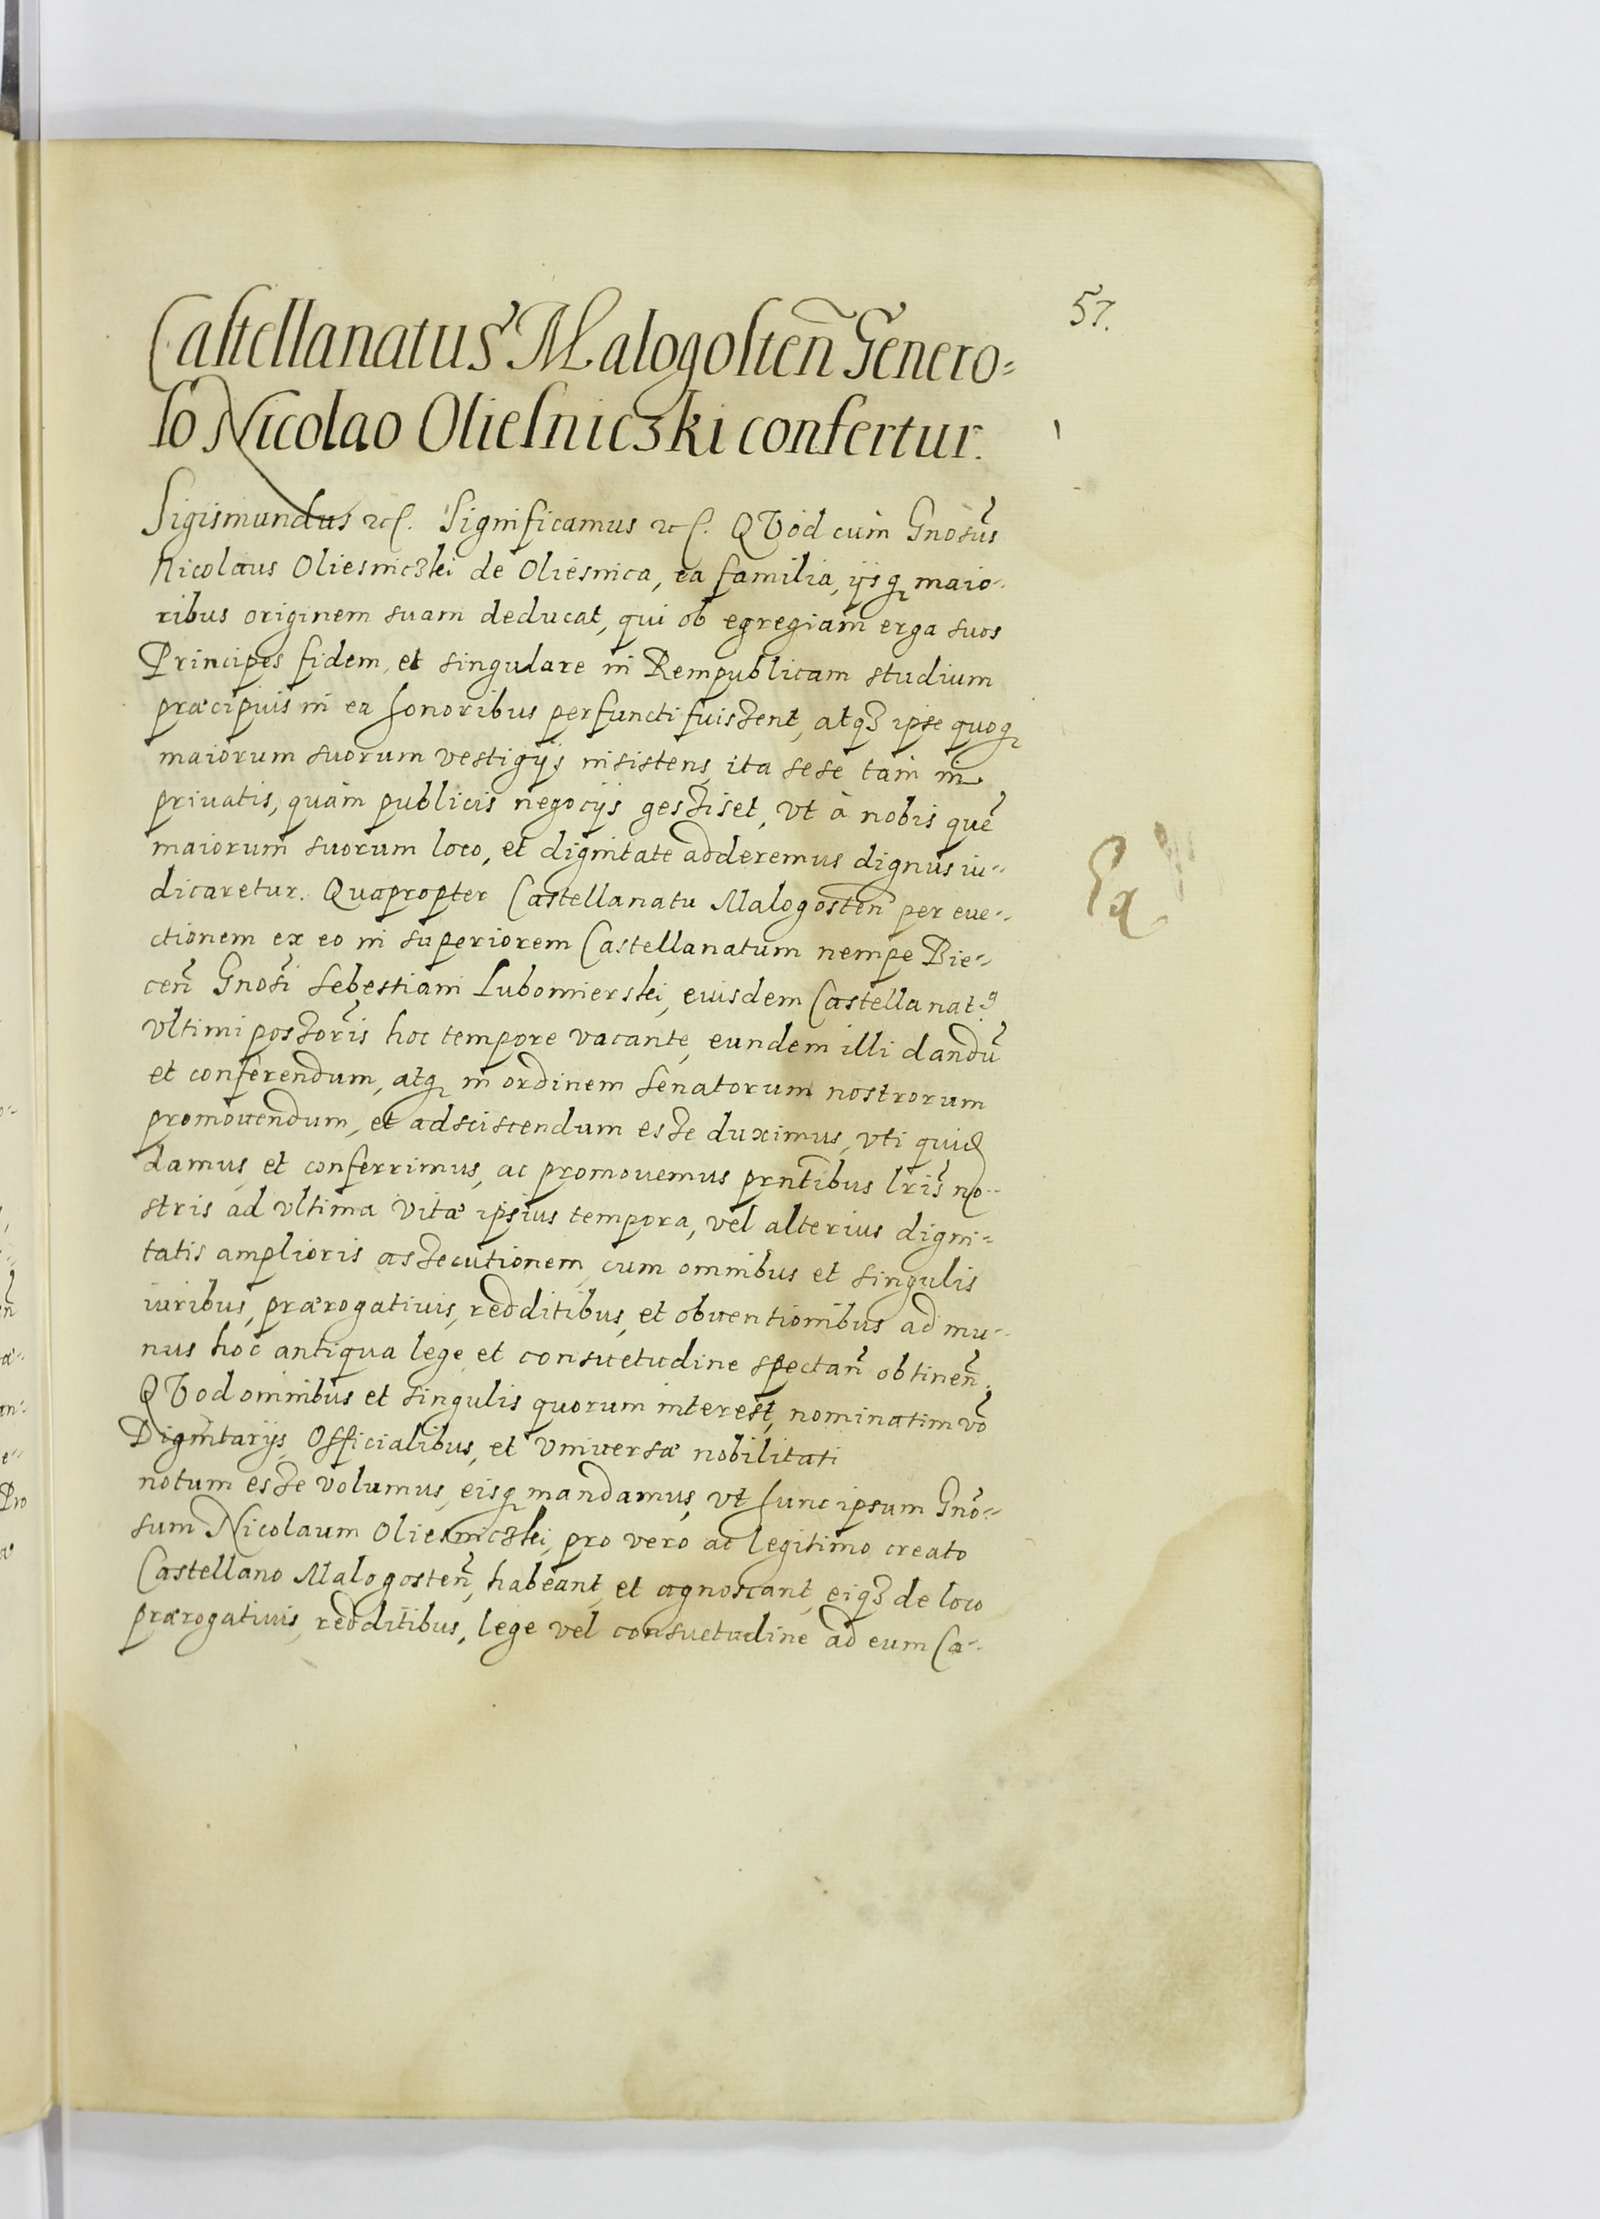 57.
Castellanatus Malogosten̄ Genero-
so Nicolao Oliesniczki confertur.
Sigismundus etc. Significamus etc. QVod cum Gnosus
Nicolaus Oliesniczki de Oliesnica, ea familia, ijsq maio-
ribus originem suam deducat, qui ob egregiam erga suos
Principes fidem, et singulare in Rempublicam studium
præcipuis in ea honoribus perfuncti fuissent, atq3 ipse quoq
maiorum suorum vestigijs insistens, ita sese tam in
priuatis, quàm publicis negocijs gessisset, vt à nobis quē
maiorum suorum loco, et dignitate adderemus dignus iu-
dicaretur. Quapropter Castellanatu Malogosten̄ per eue-
ctionem ex eo in superiorem Castellanatum nempe Bie-
cen̄ Gnosi Sebestiani Lubomierski, euisdem Castellanat9
vltimi possoris hoc tempore vacante, eundem illi dandū
et conferendum, atq in ordinem Senatorum nostrorum
promouendum, et adsciscendum esse duximus, vti quid
damus, et conferrimus, ac promouemus prntibus lris no-
stris ad vltima vitæ ipsius tempora, vel alterius digni-
tatis amplioris assecutionem, cum omnibus et singulis
iuribus, prærogatiuis, redditibus, et obuentionibus ad mu-
nus hoc antiqua lege et consuetudine spectan̄ obtinen̄.
QVod omnibus et singulis quorum interest, nominatim vō
Dignitarijs, Officialibus, et Vniuersæ nobilitati
notum esse volumus, eisq mandamus, vt hunc ipsum Gno-
sum Nicolaum Oliesniczki, pro vero ac legitimo creato
Castellano Malogosten̄, habeant, et agnoscant, eiq3 de loco
prærogatiuis, redditibus, lege vel consuetudine ad eum Ca-